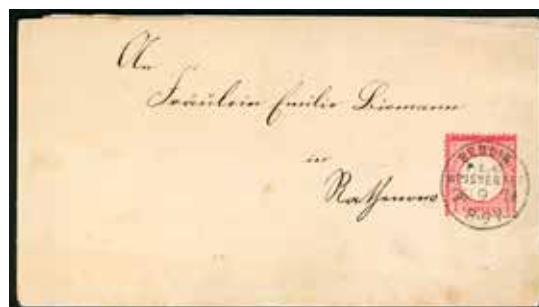 An
Fräulein Emilie Biermann
in
Rathenow
BERLIN